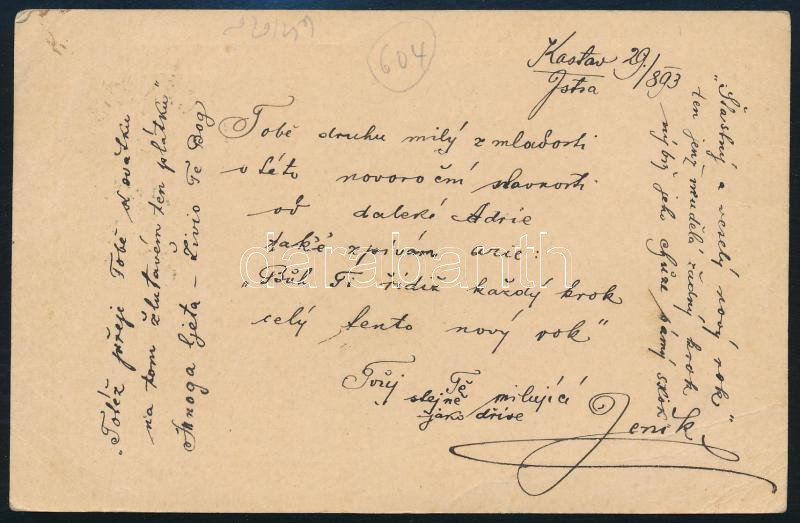 604
Kastav 29/XII 893
Istra
Tobě druhu milý z mladosti
v této novoroční slavnosti
od daleké Adrie
také zpívám arie:
„Bůh Ti řidiž každý krok
celý tento nový rok"
Tvůj Tě milující
stejně
jako dříve
Jeník
„Šťastný a veselý nový rok"
ten jenž neudělá žádný krok
nýbrž jeho chůze samý skok
„Totéž přeje Tobě
na tom žlutavém ten plátku"
Mnoga ljeta – Živio Te Bog
darabanth